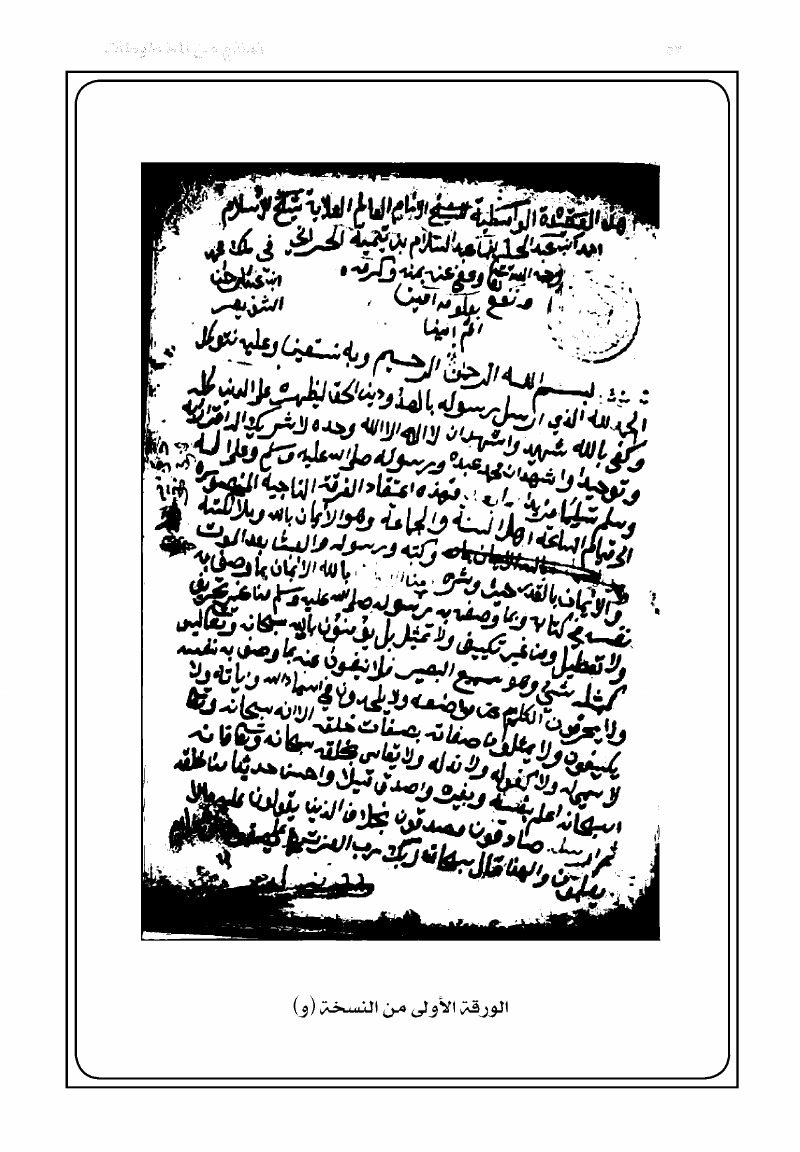 نماذج من المخطوطات
٥٦
هذه العقيدة الواسطية للشيخ الامام العالم العلامة شيخ الإسلام
احمد ابن عبد الحليم ابن عبد السلام بن تيمية الحراني في ملك محمد
رحمه الله تعالى وعفى عنه بمنه وكرمه
ونفع بعلومه امين
بسم الله الرحمن الرحيم وبه نستعين وعليه نتوكل
الحمد لله الذي ارسل رسوله بالهدى ودين الحق ليظهره على الدين كله
وكفى بالله شهيد واشهد ان لا اله الا الله وحده لا شريك له اقرارا به
وتوحيدا واشهد ان محمد عبده ورسوله صلى الله عليه وسلم وعلى اله
وسلم تسليما مزيدا فهذه اعتقاد الفرقة الناجية المنصوره
الى قيام الساعة اهل السنة والجماعة وهو الأيمان بالله وملائكته
وكتبه ورسوله والبعث بعد الموت
والأيمان بالقدر خيره وشره بالله الأيمان بما وصف به
نفسه في كتابه وبما وصفه به رسوله صلى الله عليه وسلم من غير تحريف
ولا تعطيل ومن غير تكييف ولا تمثيل بل يؤمنون بالله سبحانه وتعالى ليس
كمثله شي وهو سميع البصير فلا ينفون عنه بما وصف به نفسه
ولا يحرفون الكلم عن مواضعه ولا يلحدون في اسماء الله واياته ولا
يكيفون ولا يمثلون صفاته بصفات خلقه الانه سبحانه وتعا
لا سمي له ولا كفو له ولا ند له ولا يقاس بخلقه سبحانه وتعا فانه
سبحانه اعلم بنفسه وبغيره واصدق قيلا واحسن حديثا من خلقه
ثم رسله صادقون مصدقون بخلاف الذين يقولون عليه مالا
يعلمون ولهذا قال سبحانه ربك رب العزة عما يصفون
الورقة الأولى من النسخة (و)